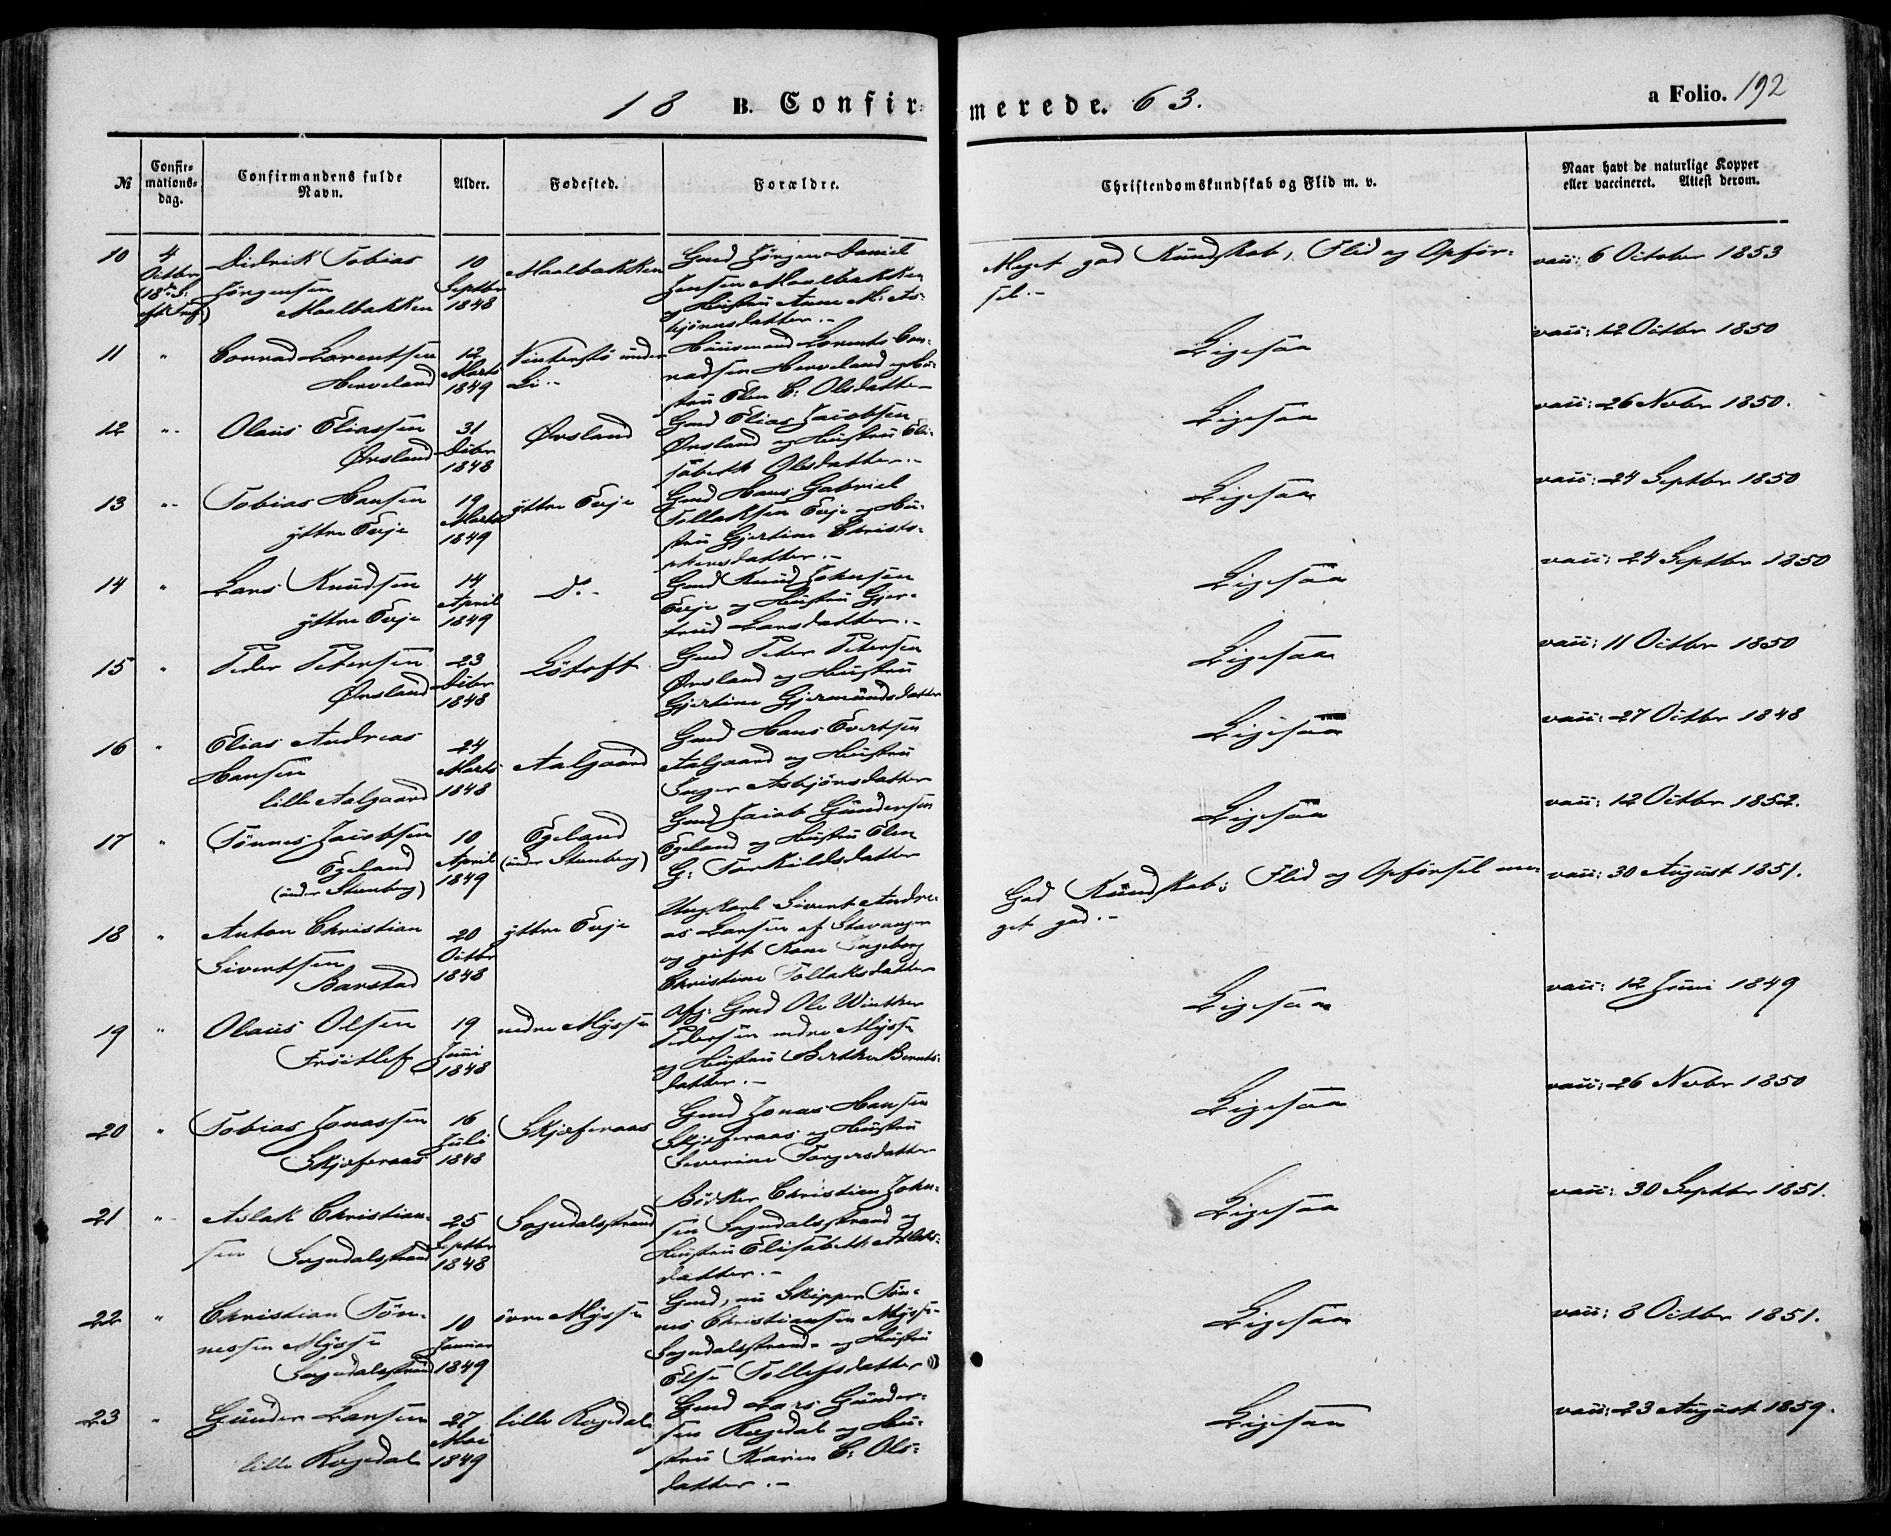 18 B. Confirmerede. 63. a Folio. 192
№ Confirmations-dag. Confirmandens fulde Navn. Alder. Fødested. Forældre. Christendomskundskab og Flid m. v. Naar havt de naturlige Kopper eller vaccineret. Attest derom.
10 4 Octbr (18de S. eft. Tref) Didrik Tobias Jørgensen Maalbakken 10 Septbr 1848 Maalbakken Gmd Jørgen Daniel Jensen Maalbakken og Hustru Anne M. Asbjørnsdatter.- Meget god Kundskab, Flid og Opførsel.- vacc: 6 October 1853
11 " Conrad Lorentsen Herveland 12 Marts 1849 Vinterstø under Li.- Huusmand Lorents Conradsen Herveland og Hustru Elen C: Olsdatter Ligesaa vacc: 12 Octbr 1850
12 " Olaus Eliassen Ørsland 31 Dcbr 1848 Ørsland Gmd Elias Jacobsen Ørsland og Hustru Elisabeth Olsdatter.- Ligesaa vacc: 26 Novbr 1850.
13 " Tobias Hansen yttre Evje 19 Marts 1849 yttre Evje Gmd Hans Gabriel Tollaksen Evje og Hustru Gjertine Christophersdatter.- Ligesaa vacc: 24 Septbr 1850
14 " Lars Knudsen yttre Evje 14 April 1849 Do.- Gmd Knud Johnsen Evje og Hustru Gjertrud Larsdatter.- Ligesaa vacc: 24 Septbr 1850
15 " Peder Petersen Ørsland 23 Dcbr 1848 Løtoft Gmd Peter Petersen Ørsland og Hustru Gjertine Gjermundsdatter Ligesaa vacc: 11 Octbr 1850
16 " Elias Andreas Hansen lille Aalgaard 24 Marts 1848 Aalgaard Gmd Hans Evertsen Aalgaard og Hustru Inger Asbjørnsdatter Ligesaa vacc: 27 Octbr 1848
17 " Tønnes Jacobsen Egeland (under Stemberg) 10 April 1849 Egeland (under Stemberg) Gmd Jacob Gundersen Egeland og Hustru Elen G: Torkildsdatter Ligesaa vacc: 12 Octbr 1852.
18 " Anton Christian Sivertsen Barstad 20 Octbr 1848 yttre Evje Ungkarl Sivert Andreas Larsen af Stavanger og gift Kone Ingeborg Christine Tollaksdatter God Kundskab; Flid og Opførsel meget god.- vacc: 30 August 1851.
19 " Olaus Olsen Frøitlef 19 Juni 1848 nedre Mysse afg: Gmd Ole Winther Pedersen nedre Mysse og Hustru Berthe Berntsdatter.- Ligesaa vacc: 12 Juni 1849
20 " Tobias Jonassen Skjeferaas 16 Juli 1848 Skjeferaas Gmd Jonas Hansen Skjeferaas og Hustru Severine Torgersdatter Ligesaa vacc: 26 Novbr 1850
21 " Aslak Christiansen Sogndalstrand 25 Septbr 1848 Sogndalstrand Bødker Christian Johnsen Sogndalstrand og Hustru Elisabeth Aslaksdatter.- Ligesaa vacc: 30 Septbr 1851.
22 " Christian Tønnessen Mysse Sogndalstrand 10 Januar 1849 övre Mysse Gmd, nu Skipper Tønnes Christiansen Mysse Sogndalstrand og Hustru Else Tollefsdatter Ligesaa vacc: 8 Octbr 1851.
23 " Gunder Larsen lille Rogedal 27 Mai 1849 lille Rogedal Gmd Lars Gundersen Rogedal og Hustru Karen C: Olsdatter.- Ligesaa vacc: 23 August 1859.